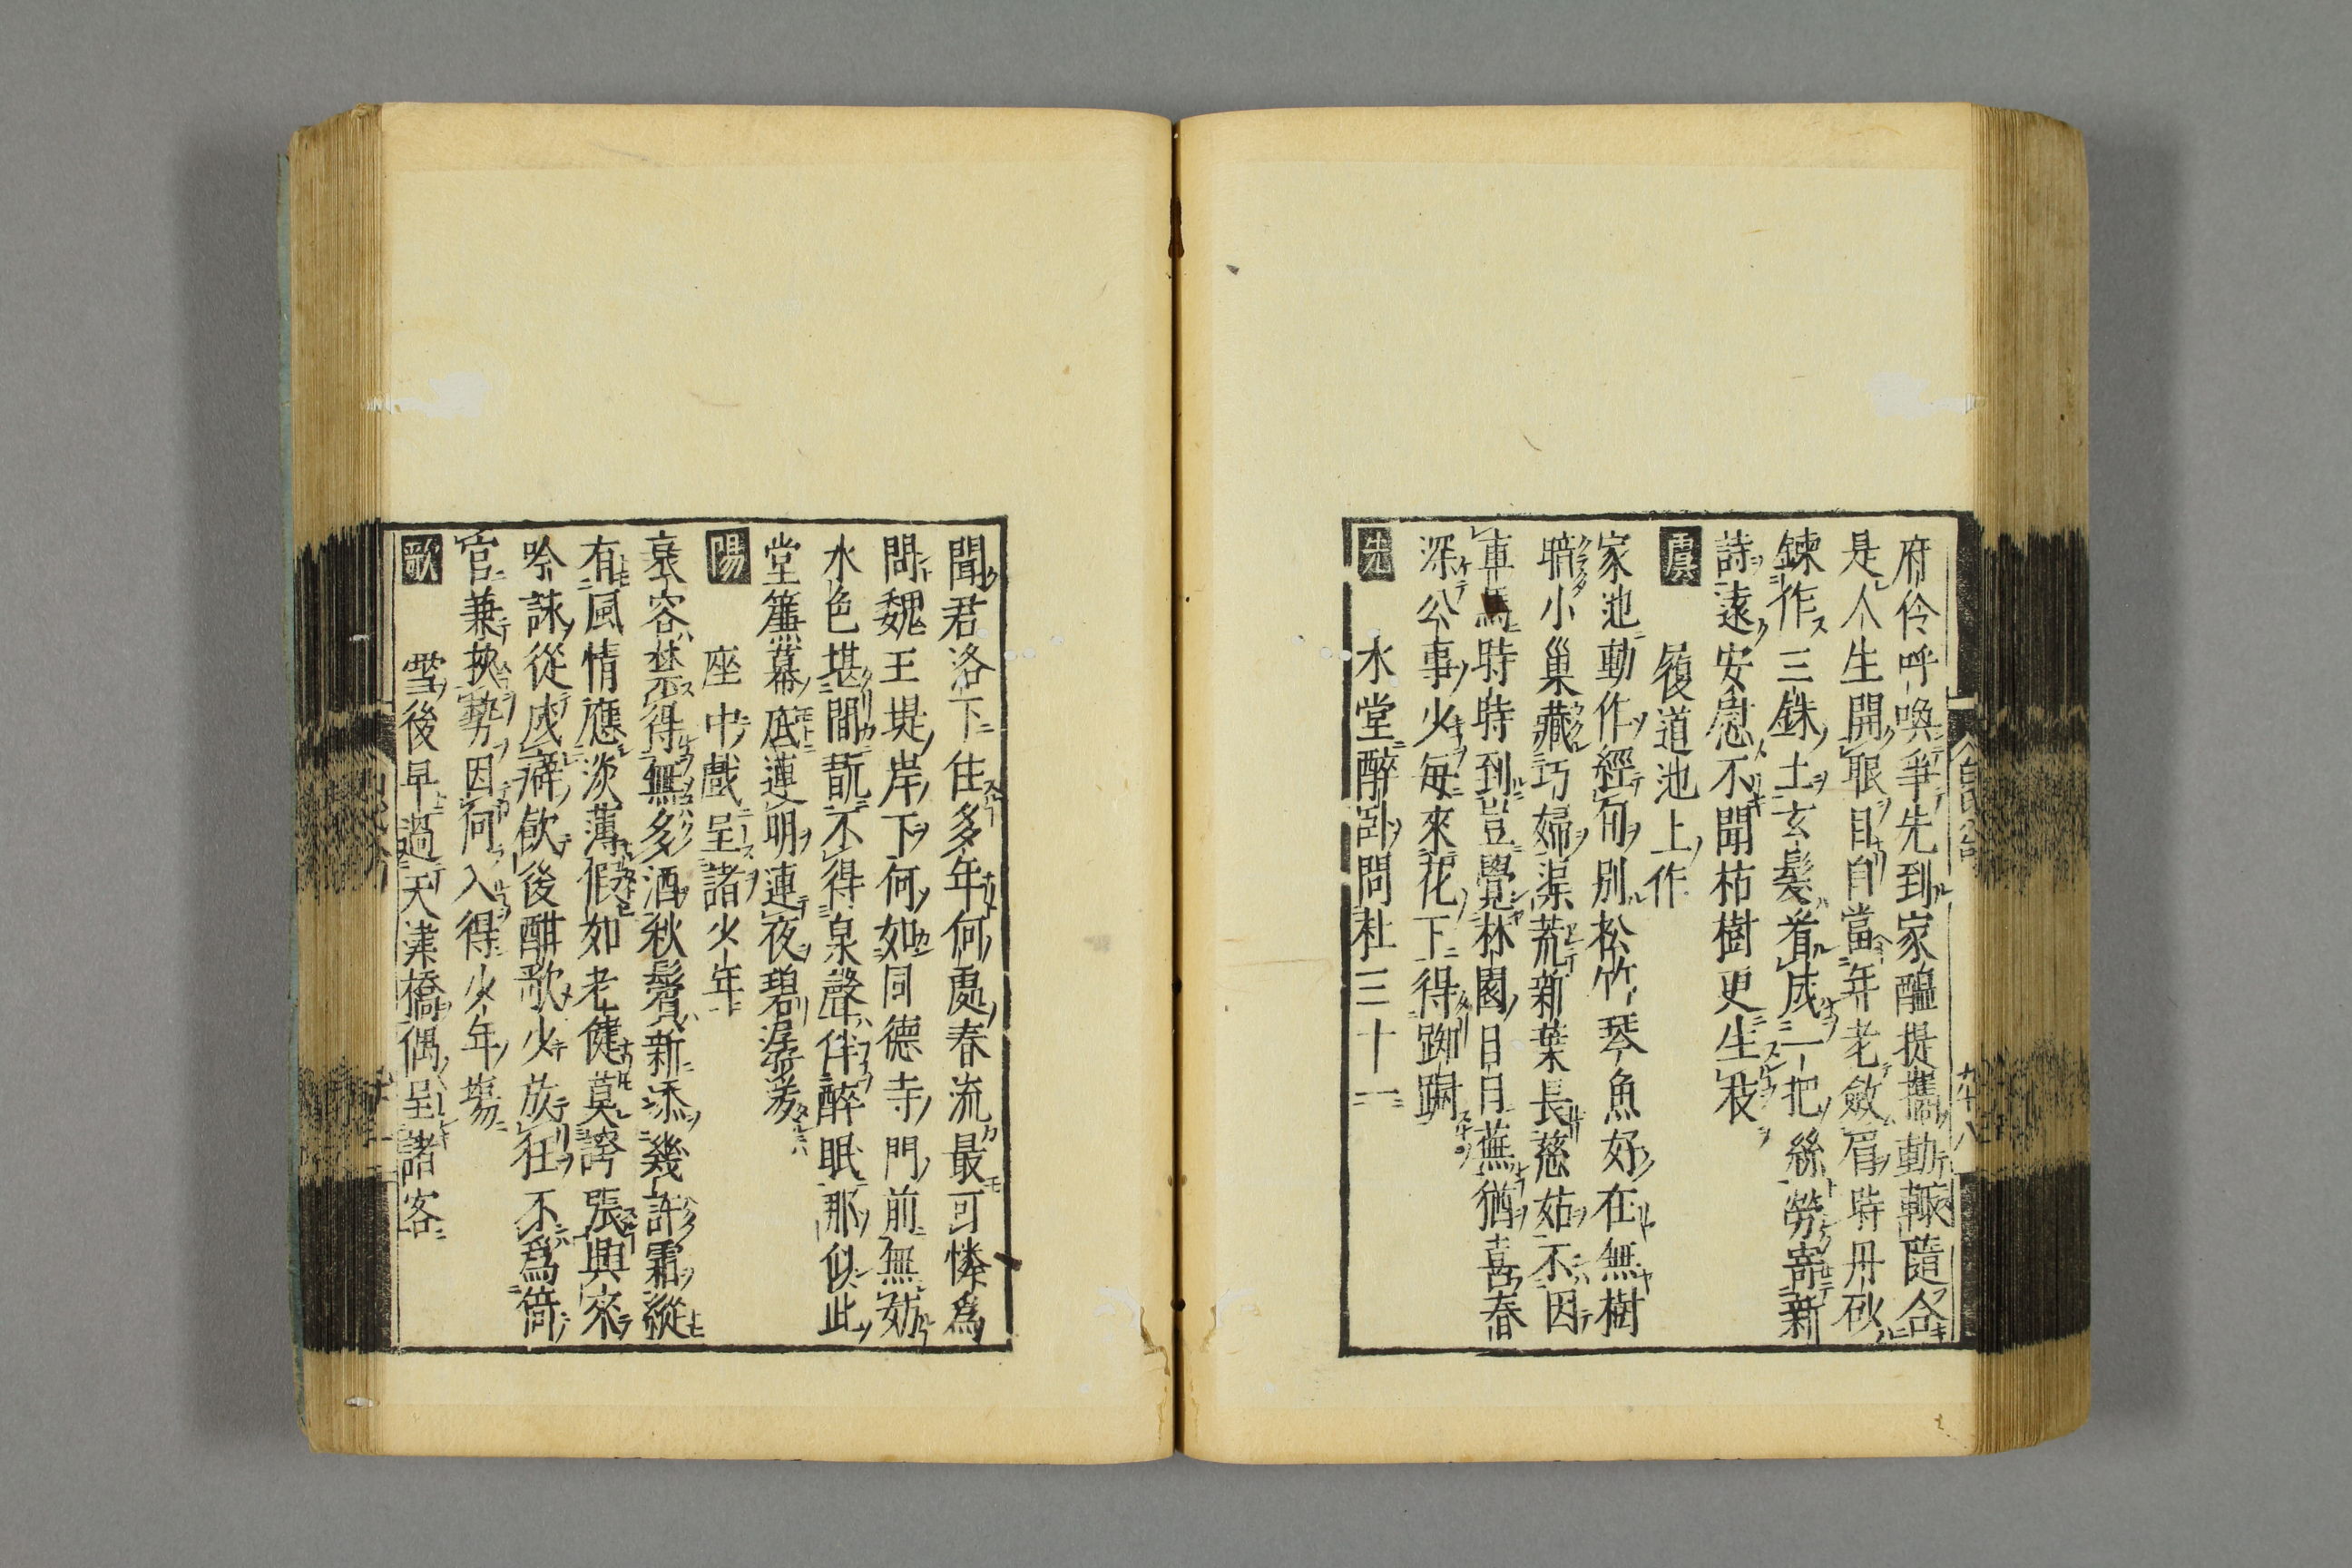 府伶呼喚爭先到家醞提攜動輙隨合
是人生開眼日自當年老斂眉時丹砂
鍊作三銖土玄髮看成一把絲勞寄新
詩遠安慰不聞枯樹更生枝
虞
履道池上作
家池動作經旬別松竹琴魚好在無樹
暗小巢藏巧婦渠荒新葉長慈姑不因
車馬時時到豈覺林園日月蕪猶喜春
深公事少每來花下得踟蹰
先
水堂醉臥問杜三十一
聞君洛下住多年何處春流最可憐爲
問魏王堤岸下何如同德寺門前無妨
水色堪閒翫不得泉聲伴醉眠那似此
堂簾幕底連明連夜碧潺湲
陽
座中戲呈諸少年
衰容禁得無多酒秋鬢新添幾許霜縱
有風情應淡薄假如老健莫誇張興來
吟詠從成癖飲後酣歌少放狂不爲倚
官兼挾勢因何入得少年塲
歌
雪後早過天津橋偶呈諸客